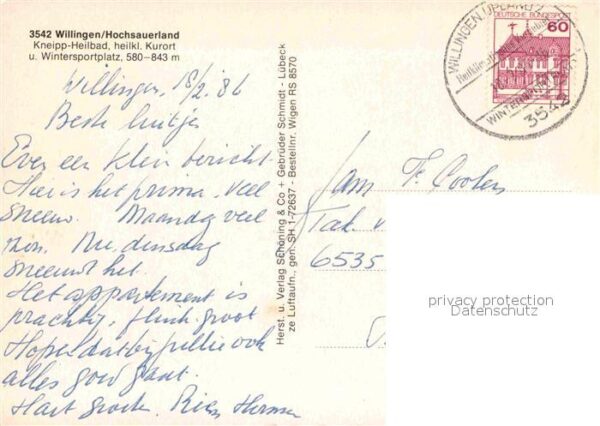 3542 Willingen/Hochsauerland
Kneipp-Heilbad, heilkl. Kurort
u. Wintersportplatz, 580–843 m
Willingen, 18/2. 86
Beste luitjes
Even een klein bericht.
Hier is het prima. Veel
sneeuw. Maandag veel
zon. Nu dinsdag
sneeuwt het.
Het appartement is
prachtig, flink groot
Hopen dat bij jullie ook
alles goed gaat.
Hart. groeten. Rien Herma
Herst. u. Verlag Schöning & Co + Gebrüder Schmidt - Lübeck
ze Luftaufn., gen. SH 1-72637 - Bestellnr. Wigen RS 8570
DEUTSCHE BUNDESPOST
60
WILLINGEN, UPLAND
Heilklimatischer
3542
Fam. F. Coolen
6535
privacy protection
Datenschutz